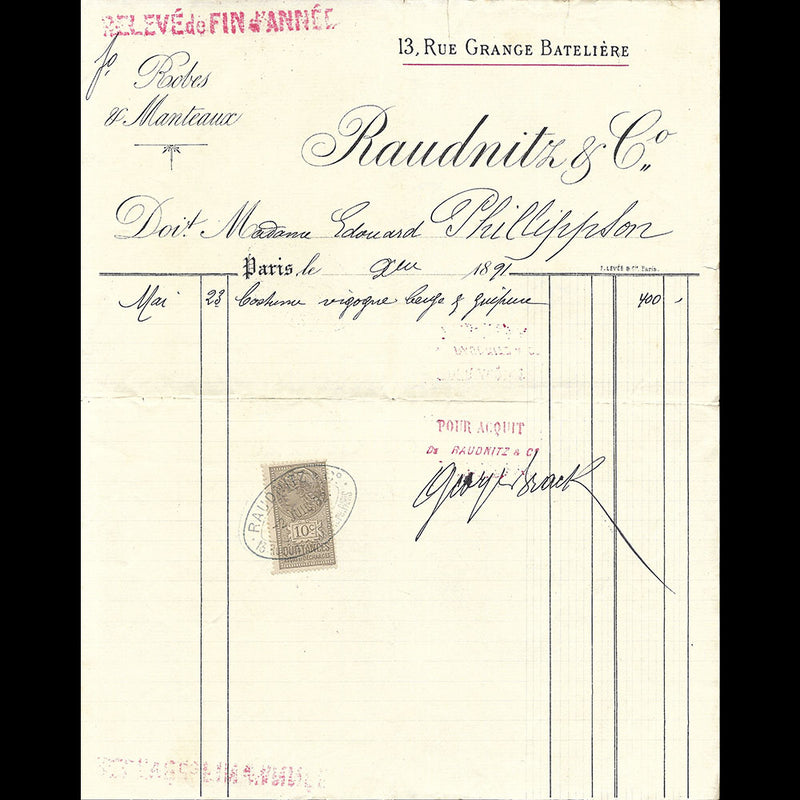 RELEVÉ de FIN d'ANNÉE
fo
13, RUE GRANGE BATELIÈRE
Robes
& Manteaux
Raudnitz & Co
Doit Madame Edouard Phillippson
Paris, le Xbre 1891
F. LEVÉE & Cie Paris.
Mai 23 Costume vigogne beige & guipure 400 "
POUR ACQUIT
De RAUDNITZ & Co
RAUDNITZ & Co
10c
QUITTANCES
RELEVÉ de FIN d'ANNÉE